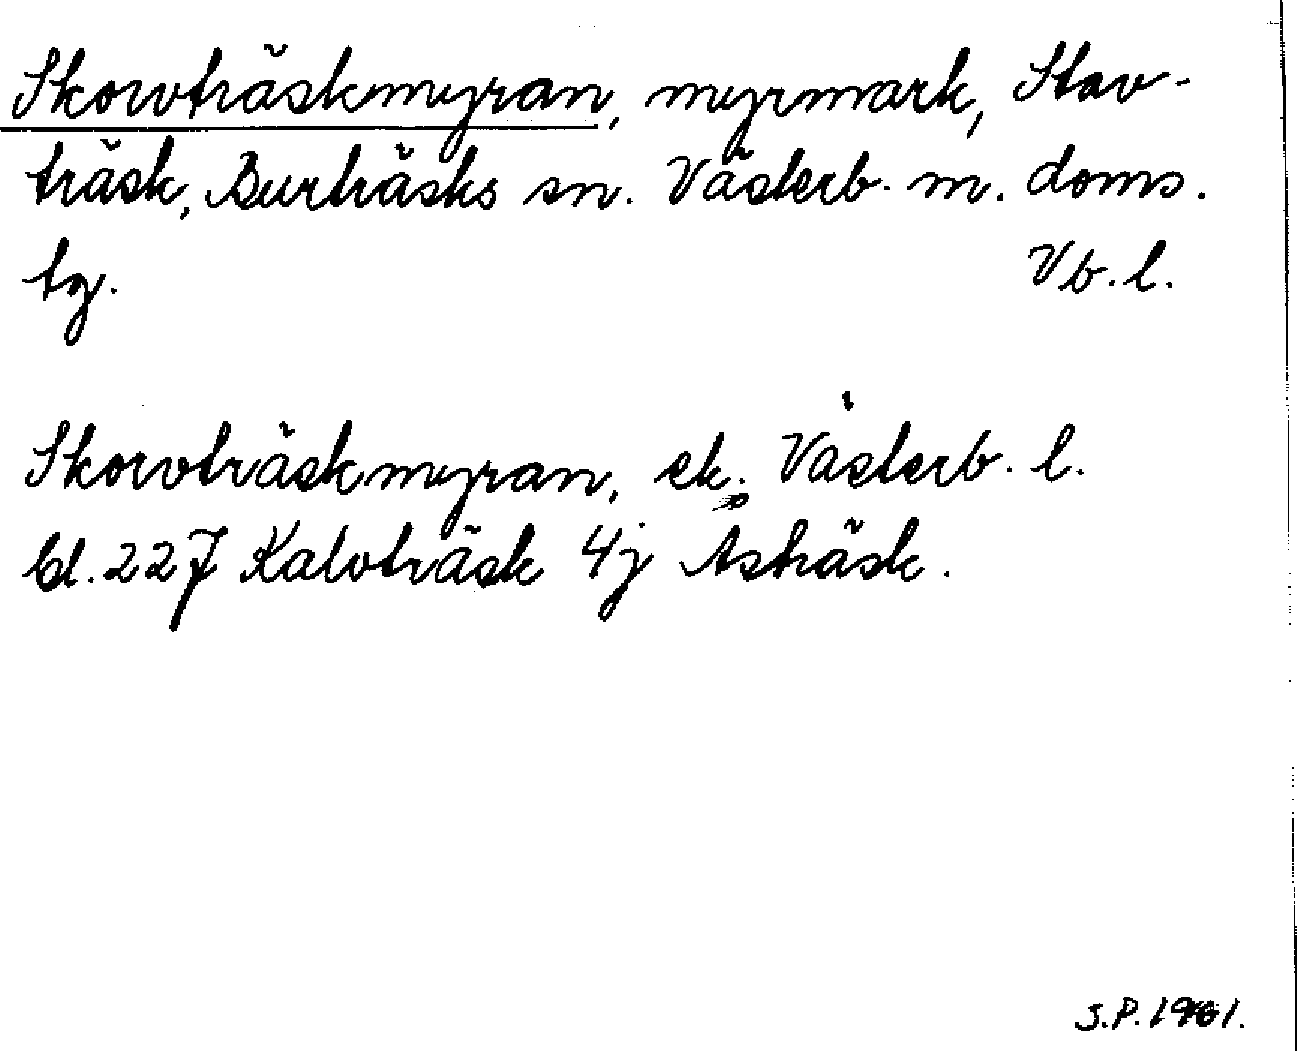 Skorvträskmyran, myrmark, Stav-
träsk, Burträsks sn. Västerb. m. doms.
tg. Vb. l.
Skorvträskmyran, ek. Västerb. l.
bl. 227 Kalvträsk 4j Asträsk.
S.P. 1961.